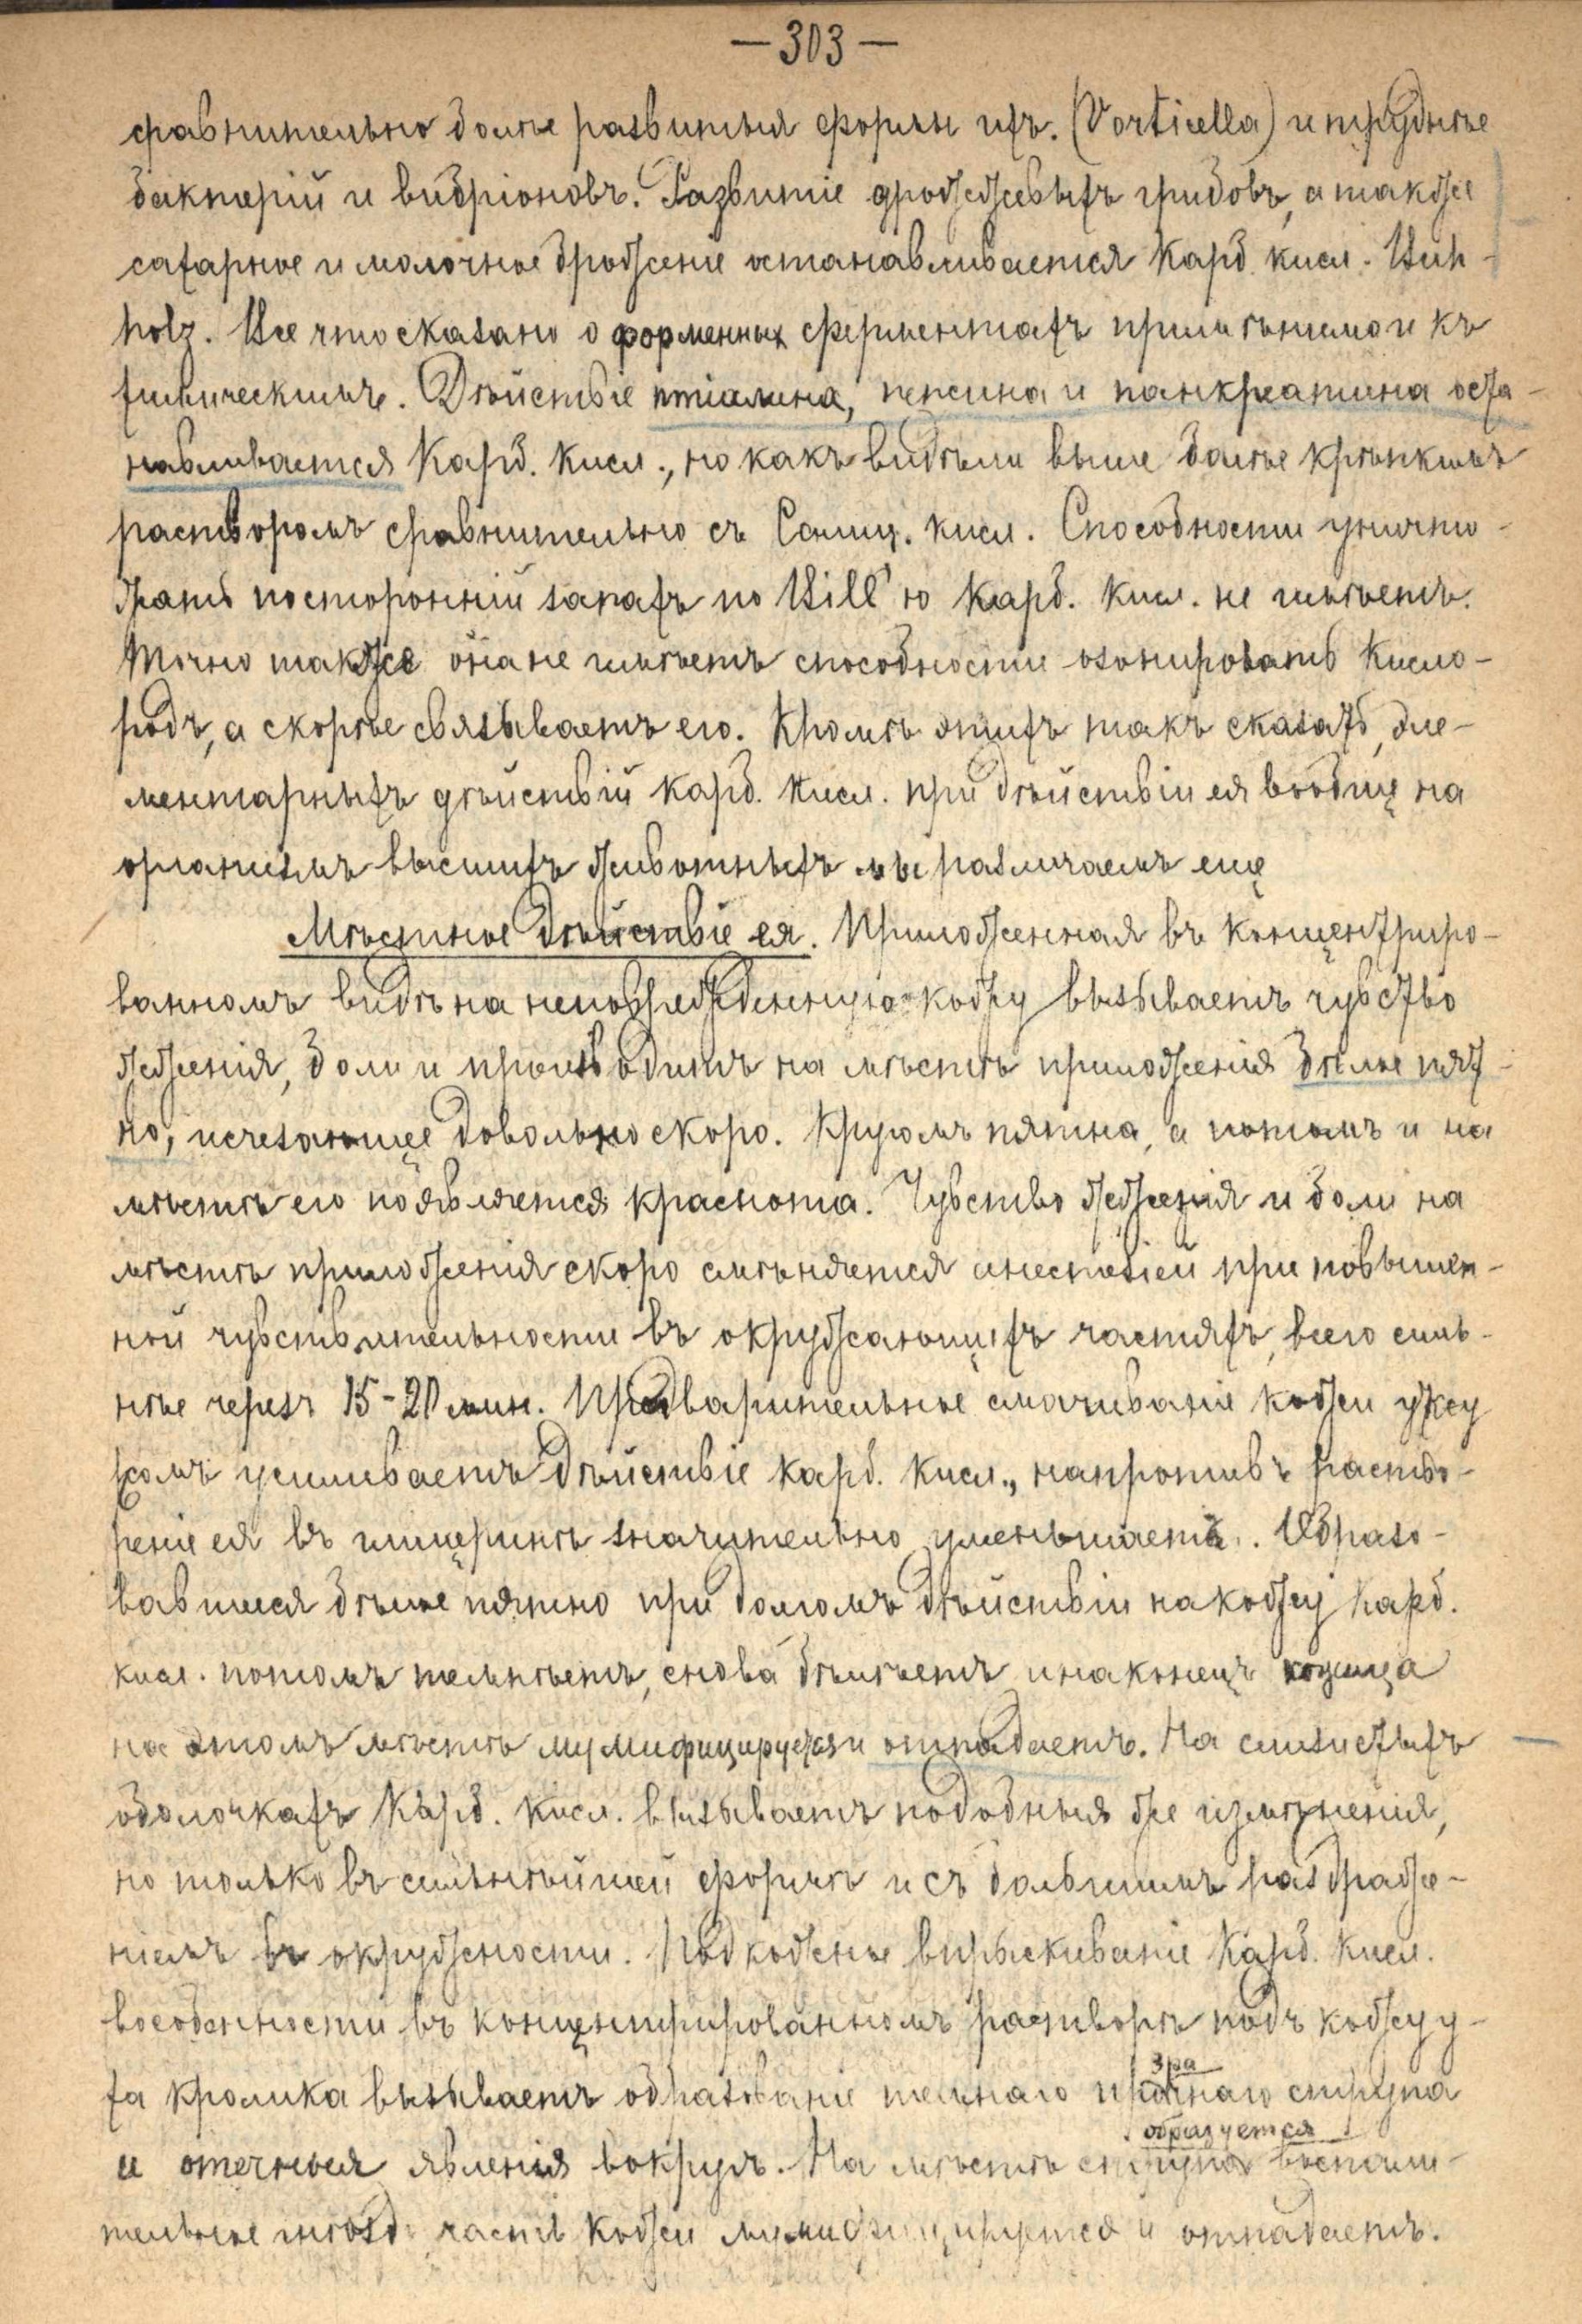 — 303 —
сравнительно болѣе развитыя формы их. (Vorticella) и труднѣе
бактерій и вибріоновъ. Развитіе дрожжевыхъ грибовъ, а также
сахарное и молочное броженіе останавливается Карб. кисл. Buch-
holz. Все что сказано о форменных ферментахъ примѣнимо и къ
химическимъ. Дѣйствіе птіалина, пепсина и панкреатина оста-
навливается Карб. Кисл., но какъ видѣли выше болѣе крѣпкимъ
растворомъ сравнительно съ Салиц. кисл. Способности уничто-
жать посторонній запахъ по Hill'ю Карб. Кисл. не имѣетъ.
Точно также она не имѣетъ способности озонировать Кисло-
родъ, а скорѣе связываетъ его. Кромѣ этихъ такъ сказать, эле-
ментарныхъ дѣйствій Карб. Кисл. при дѣйствіи ея вообще на
организмъ высшихъ животныхъ мы различаемъ еще
Мѣстное дѣйствіе ея. Приложенная въ концентриро-
ванномъ видѣ на неповрежденную кожу вызываетъ чувство
жженія, боли и производитъ на мѣстѣ приложенія бѣлое пят-
но, исчезающее довольно скоро. Кругомъ пятна, а потомъ и на
мѣстѣ его появляется краснота. Чувство жженія и боли на
мѣстѣ приложенія скоро смѣняется анестезіей при повышен-
ной чувствительности въ окружающихъ частяхъ, всего силь-
нѣе черезъ 15-20 мин. Предварительное смачиваніе кожи уксу
сомъ усиливаетъ дѣйствіе карб. кисл., напротивъ раство-
реніе ея въ глицеринѣ значительно уменьшаетъ. Образо-
вавшееся бѣлое пятно при долгомъ дѣйствіи на кожу Карб.
кисл. потомъ темнѣетъ, снова бѣлѣетъ и наконецъ кожица
на этомъ мѣстѣ мумифицируется и отпадаетъ. На слизистыхъ
оболочкахъ Карб. Кисл. вызываетъ подобныя же измѣненія,
но только въ сильнѣйшей формѣ и съ большимъ раздраже-
ніемъ въ окружности. Подкожное впрыскиваніе Карб. Кисл.
въособенности въ концентрированномъ растворѣ подъ кожу у-
ха кролика вызываетъ образованіе темнаго прозрачнаго струпа
и отечныя явленія вокругъ. На мѣстѣ струпа образуется воспали-
тельное гнѣздо часть кожи мумифицируется и отпадаетъ.